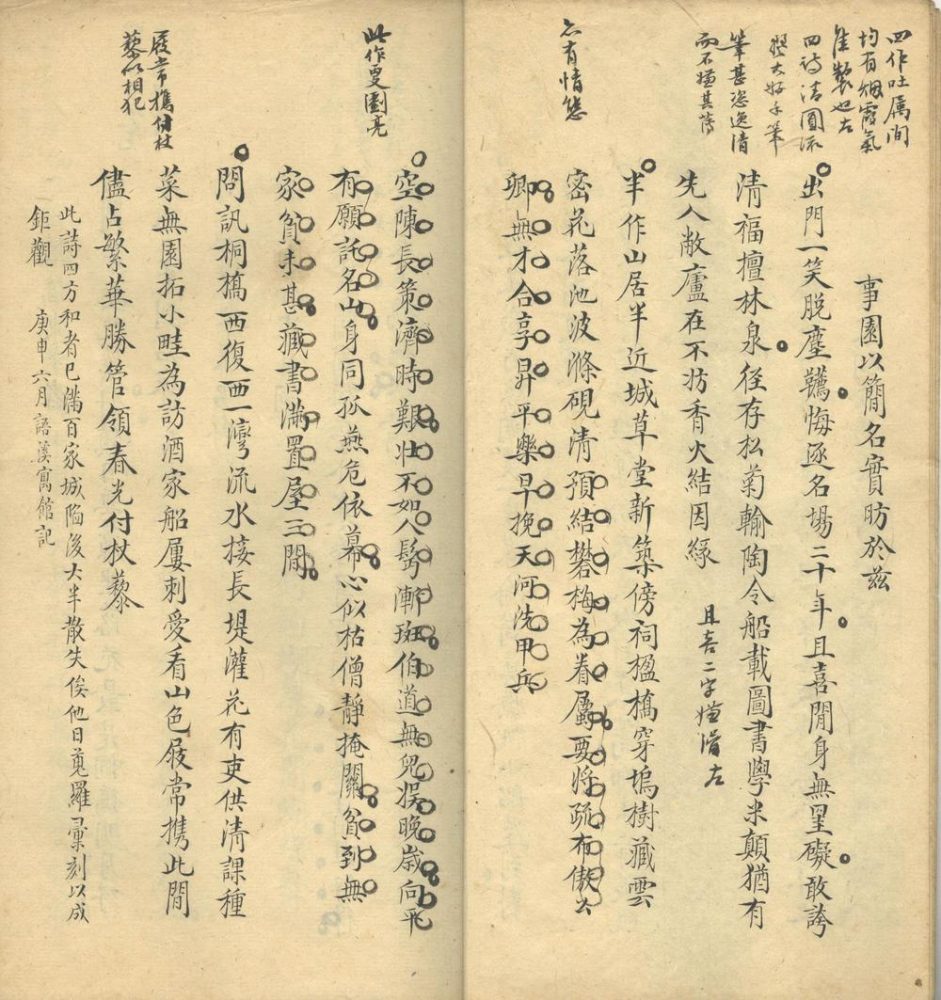 四作吐属间
均有烟霞氣
隹製也左
四詩清圓流
大好手筆
筆甚恣逸清
而不嫌其薄
事園以簡名實昉於兹
出門一笑脱塵韀悔逐名場二十年且喜閒身無罣礙敢誇
清福擅林泉径存松菊輸陶令船載圖書學米顛猶有
先人敝廬在不妨香火結因緣 且喜二字嫌滑左
亦有情態
半作山居半近城草堂新築傍祠楹橋穿塢樹藏雲
密花落池波滌硯清預結礬梅為眷屬要將疏布傲公
卿無才合享昇平樂早挽天河洗甲兵
此作更瀏亮
空陳長策濟時艱壯不如人髩漸斑伯道無兒娱晚歲向平
有願託名山身同孤燕危依幕心似枯僧靜掩關貧到無
家貧未甚藏書滿置屋三間
問訊桐橋西復西一灣流水接長堤灌花有吏供清課種
菜無園拓小畦為訪酒家船屢刺愛看山色屐常攜此間
儘占繁華勝管領春光付杖藜
屐常攜付杖
藜似相犯
此詩四方和者已滿百家城陷後大半散失俟他日蒐羅彙刻以成
鉅觀 庚申六月語溪寓館記